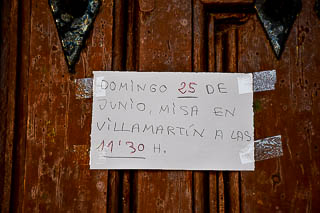 DOMINGO 25 DE
JUNIO, MISA EN
VILLAMARTÍN A LAS
11'30 H.